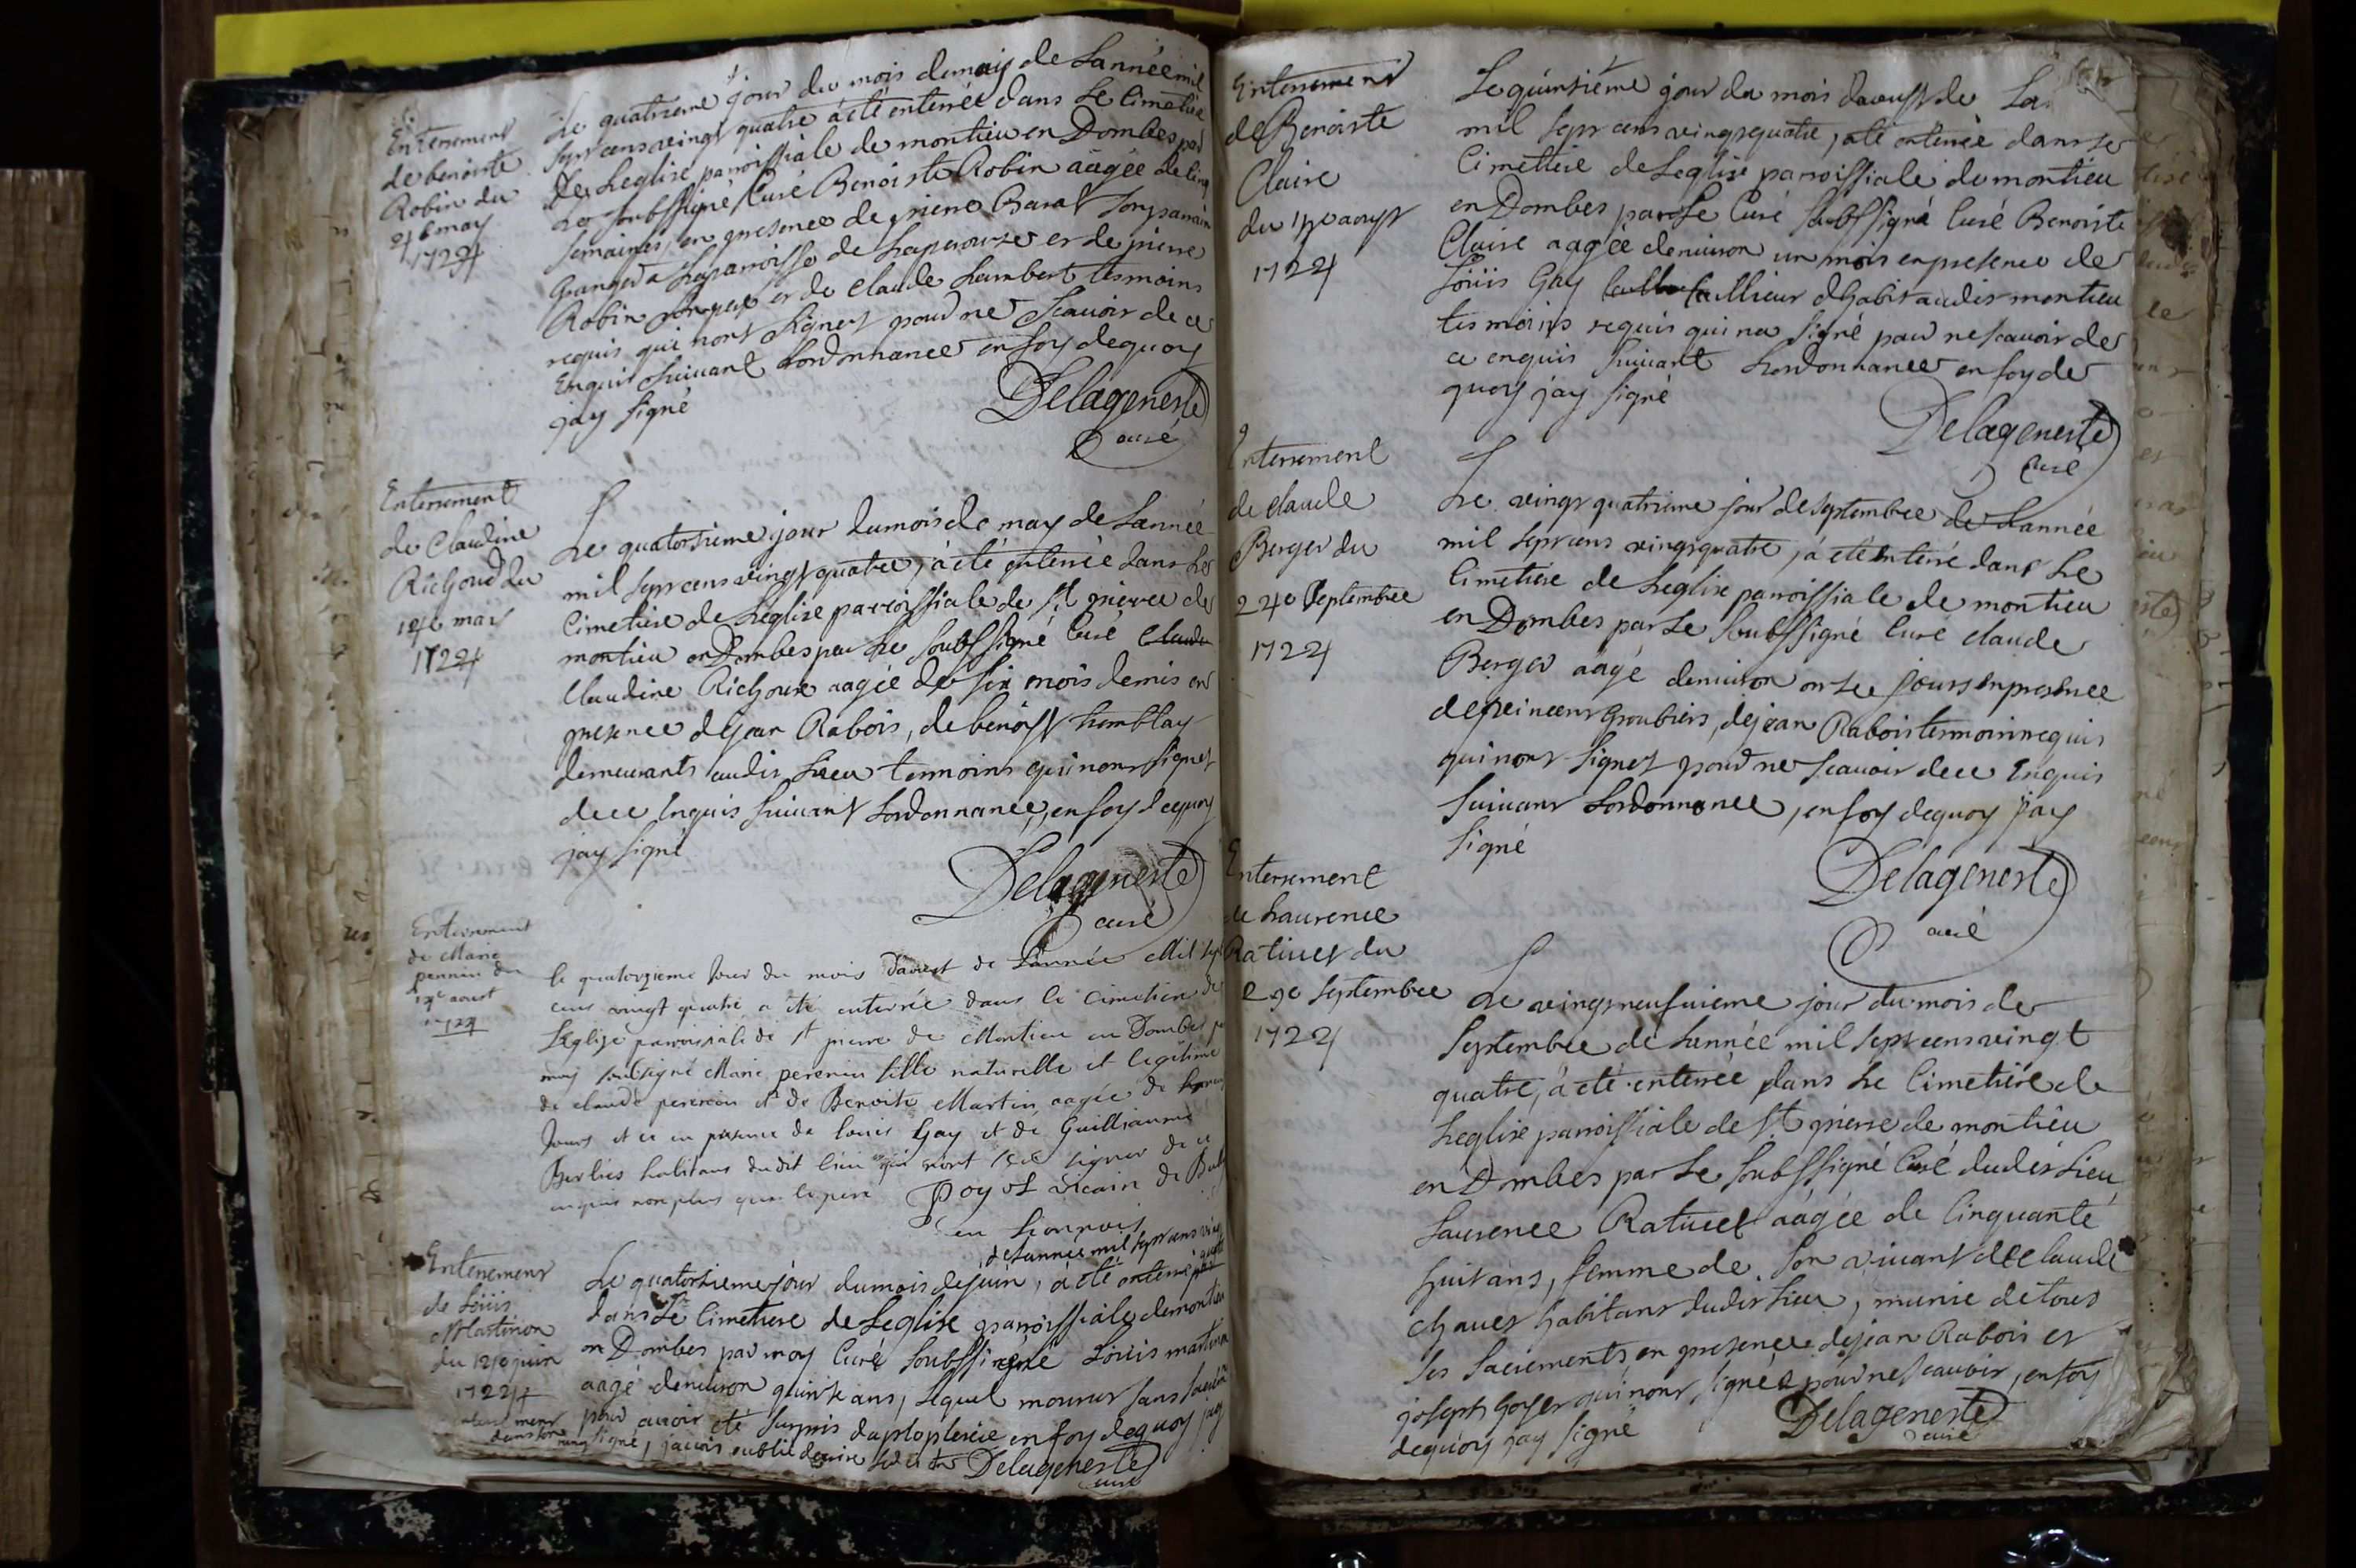 Enterrement
de benoiste
Robin du
4e may
1724
Le quatrieme jour du mois de may de Lannée mil
sept cens vingt quatre a été enterrée dans Le Cimetiere
de Leglise parroissiale de montieu en Dombes par
Le soubssigné Curé Benoiste Robin aagée de cinq
semaines, en presence de pierre Barat son parrain
granger a Laparroisse de Laperouze et de pierre
Robin son pere et de Claude Lambert tesmoins
requis qui nont signés pour ne scavoir de ce
Enquis suivant Lordonnance en foy dequoy
jay signé
Delageneste
curé
Enterrement
de Claudine
Richoud du
14e may
1724
Le quatorsieme jour dumois de may de Lannée
mil sept cens vingt quatre, a été enterrée dans Le
Cimetiere de Leglise parroissiale de St pierre de
montieu en Dombes par Le soubssigné Curé
Claudine Richoux aagée de six mois demis en
presence dejean Rabois, de benoist
demeurants audit Lieu temoins qui nont signés
dece Enquis suivant Lordonnance, en foy dequoy
jay signé
Delageneste
curé
Enterrement
de Marie
perenin du
14e aoust
1724
le quatorzieme Jour du mois Daoust de Lannée Mil sept
cens vingt quatre a été enterrée dans le Cimetiere de
Leglise paroissiale de St pierre de Montieu en Dombes par
moy soussigné Marie perenin fille naturelle et legitime
de claude perenin et de Benoite Martin aagée de
Jours et ce en presence de louis Gay et de Guilliaume
Berlies habitans dudit lieu qui nont sçu signer de ce
enquis non plus que le pere
vicaire de
en Lionnois
Enterrement
de Loüis
Martinon
du 14e juin
1724
dans son
rang
de Lannée mil sept cens vingt
quatre
Le quatorsieme jour dumois de juin, a été enterré
dans Le Cimetiere de Leglise parroissiale de montieu
en Dombes par moy Curé soubssigné Loüis martinon
aagé denviron quinse ans, Lequel mourut sans
pour avoir été surpris en foy dequoy jay
signé, javois oublié
Delageneste
curé
Enterrement
de Benoiste
Claire
du 15e aoust
1724
Le quinsième jour du mois daoust de
mil sept cens vingt quatre, a été enterrée dans Le
Cimettiere de Leglise parroissiale de montieu
en Dombes par Le Curé soubssigné Curé Benoiste
Claire aagée denviron un mois en presence de
Loüis Gay habitant audit montieu
tesmoins requis qui na signé pour ne scavoir de
ce enquis suivant Lordonnance en foy de
quoy jay signé
Delageneste
curé
Enterrement
de claude
Berger du
24e septembre
1724
Le vingt quatrieme jour de septembre de Lannée
mil sept cens vingt quatre, a été Enterré dans Le
Cimetiere de Leglise parroissiale de montieu
en Dombes par Le soubssigné Curé claude
Berger aagé denviron onse jours en presence
de vincent Groubiers, dejean Rabois temoins requis
qui nont signés pour ne scavoir dece Enquis
suivant Lordonnance, en foy dequoy jay
signé
Delageneste
curé
Enterrement
de Laurence
Ratiuet du
29e septembre
1724
Le vingt neufuieme jour du mois de
septembre de Lannée mil sept cens vingt
quatre, a été enterrée dans Le Cimetiere de
Leglise parroissiale de St pierre de montieu
en Dombes par Le soubssigné Curé dudit Lieu
Laurence Ratiuet aagée de Cinquante
huit ans, femme de son vivant de Claude
chauet habitant dudit Lieu, munie de tous
ses sacrements, en presence dejean Rabois et
joseph goyer qui nont signés pour ne scavoir, en foy
dequoy jay signé
Delageneste
curé